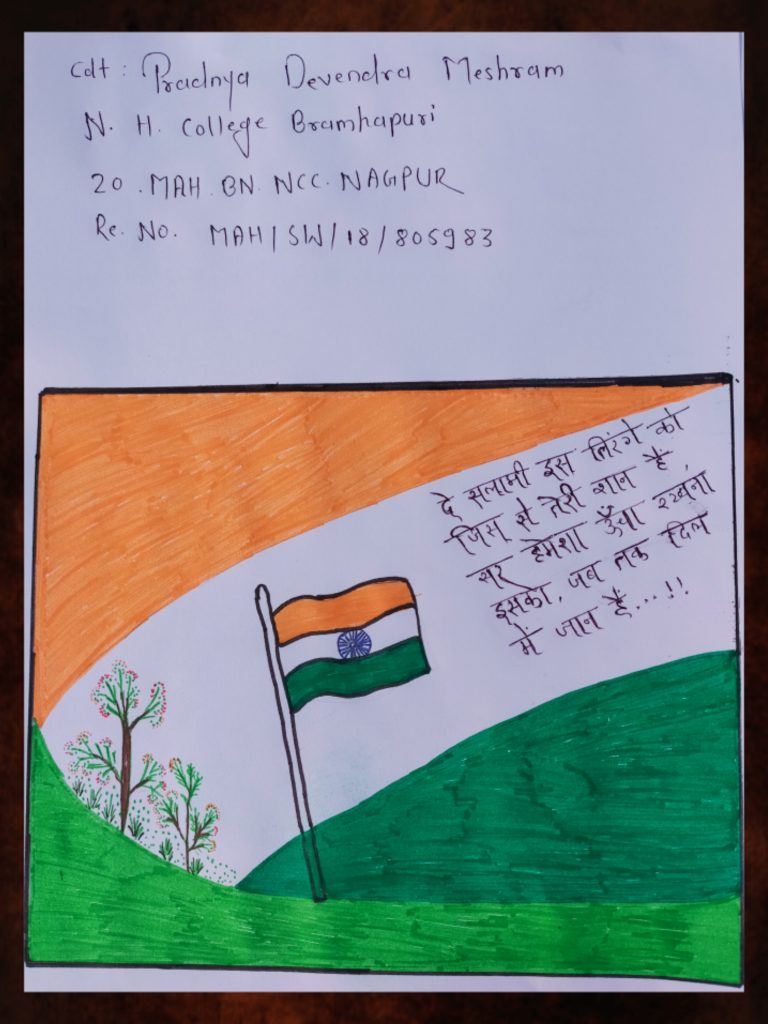 Cdt : Pradnya Devendra Meshram
N. H. College Bramhapuri
20 . MAH . BN . NCC . NAGPUR
Re. No. MAH / SW / 18 / 805983
दे सलामी इस तिरंगे को
जिस से तेरी शान है
सर हमेशा ऊँचा रखना
इसका, जब तक दिल
में जान है...!!